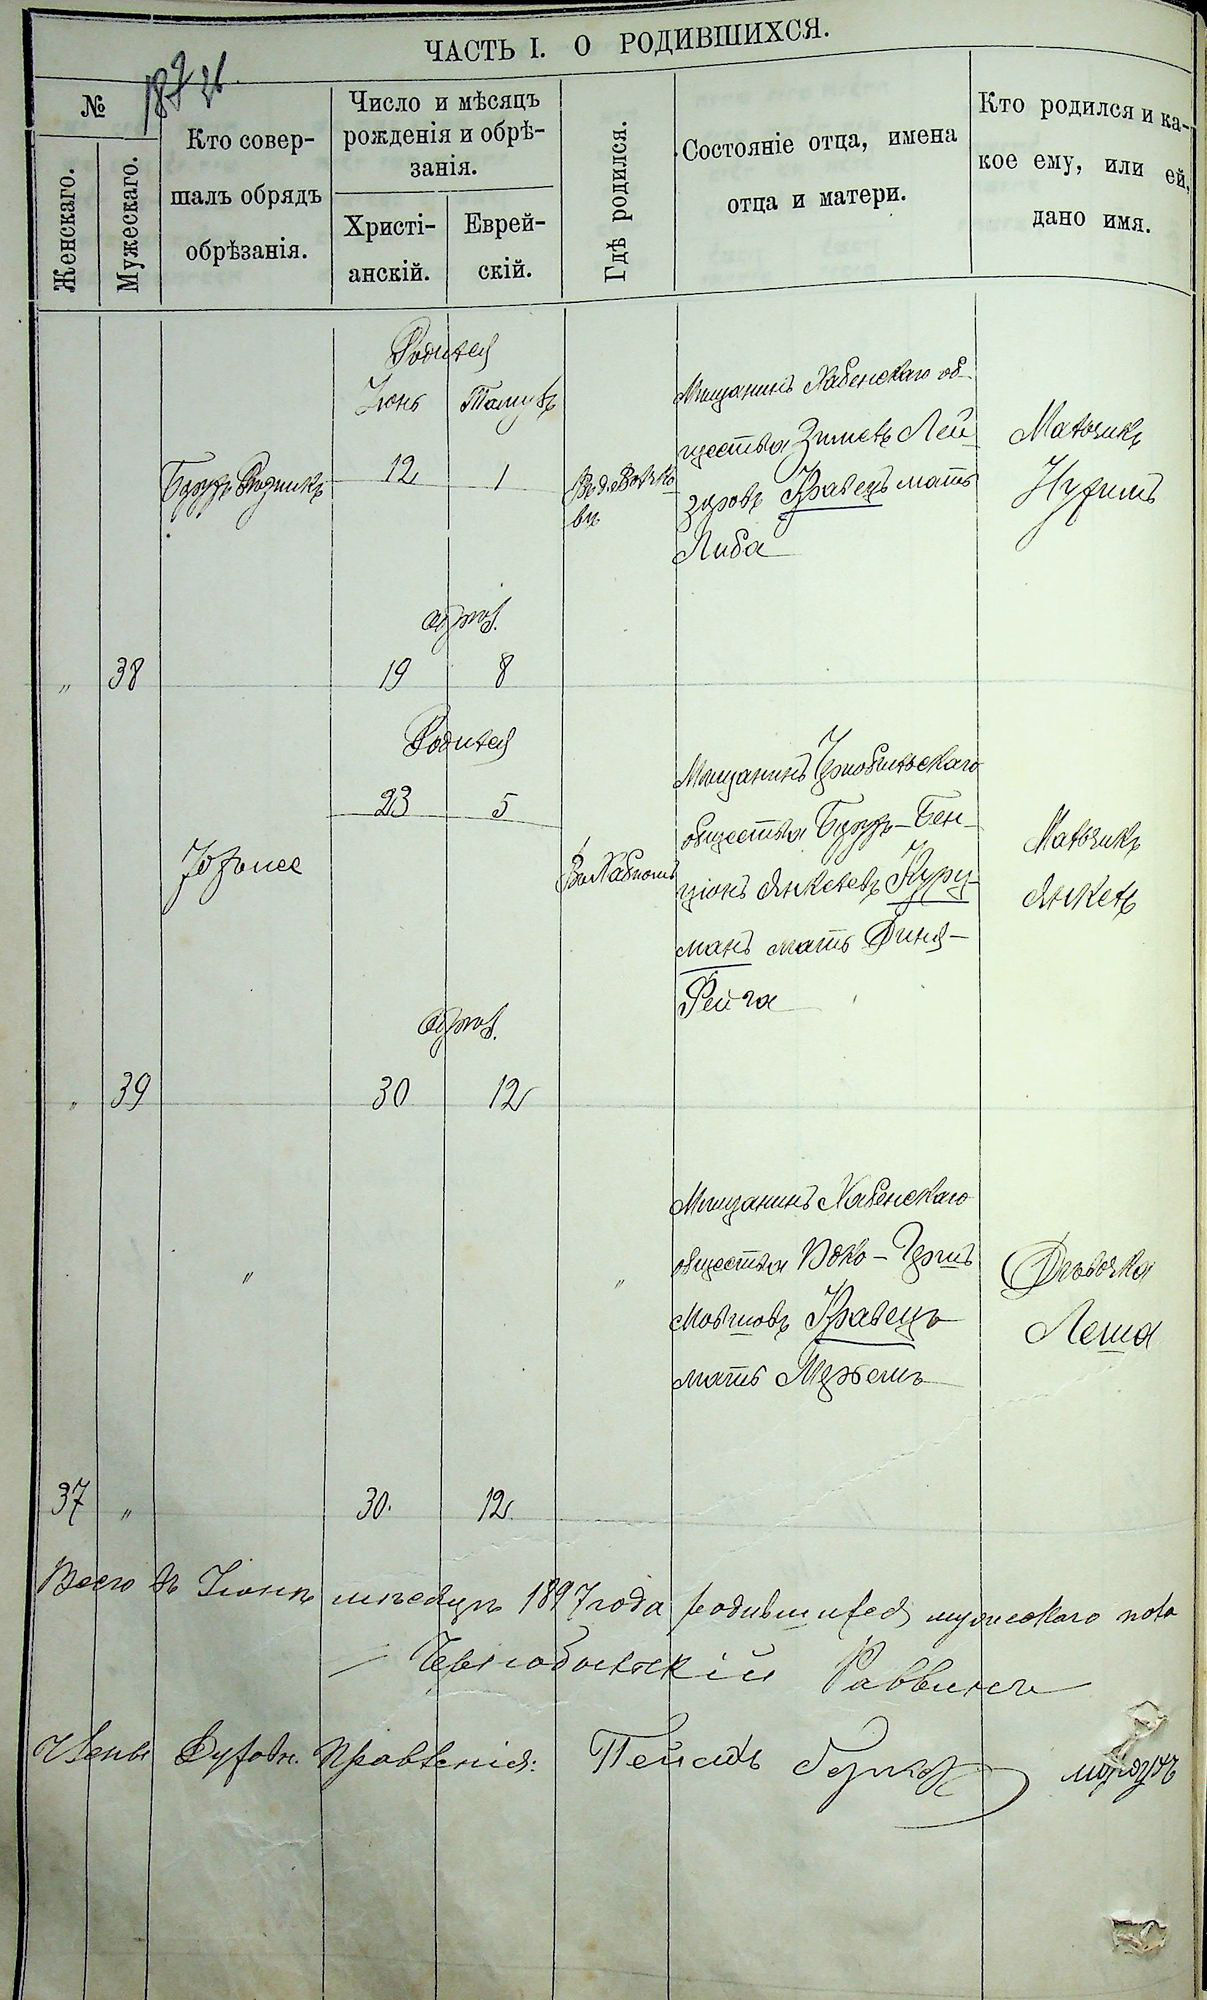 ЧАСТЬ I. О РОДИВШИХСЯ.
№
Женскаго.
Мужескаго.
Кто совер-
шалъ обрядъ
обрѣзанія.
Число и мѣсяцъ
рожденія и обрѣ-
занія.
Христі-
анскій.
Еврей-
скій.
Гдѣ родился.
Состояніе отца, имена
отца и матери.
Кто родился и ка-
кое ему, или ей,
дано имя.
Родился
Іюнь Тамузъ
12 1
Мѣщанинъ Хабенскаго об-
щества Зимелъ Лей-
зеровъ Кравецъ мать
Либа
Мальчикъ
Нухимъ
обрѣз.
„ 38 19 8
Родился
23 5
Мѣщанинъ Чернобыльскаго
общества Борухъ-Бен-
ціонъ Янкелевъ
манъ мать Диня-
Фейга
Мальчикъ
Янкель
обрѣз.
„ 39 30 12
„ „
Мѣщанинъ Хабенскаго
общества
Мовшовъ Кравецъ
мать
Дѣвочка
Леша
37 „ 30. 12.
Всего въ Іюнѣ мѣсяцѣ 1897 года родившихся мужескаго пола
Чернобыльскій Раввинъ
Члены Духовн. Правленія: Пейсахъ